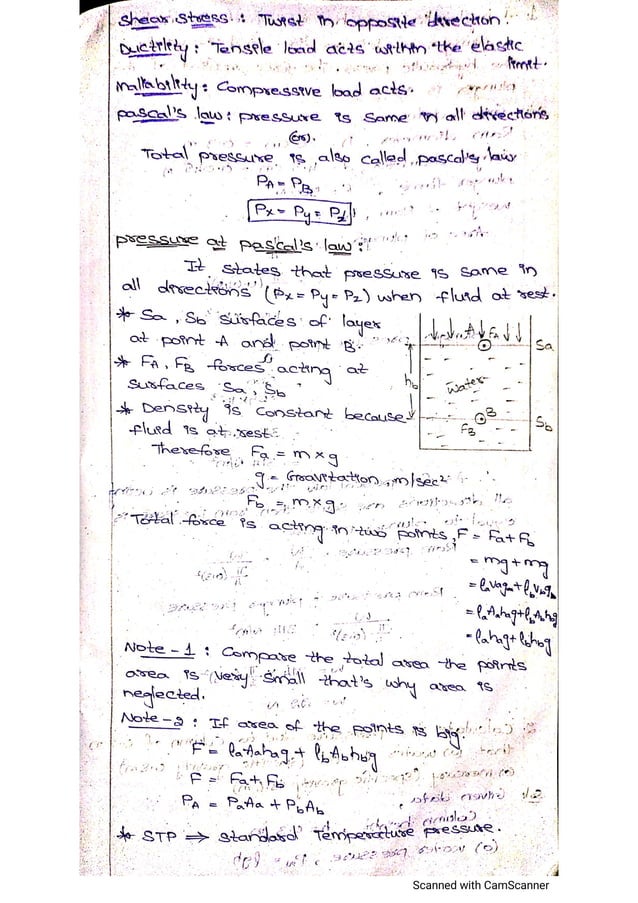 Shear stress : Twist in opposite direction.
Ductility : Tensile load acts within the elastic
limit.
Mallability : Compressive load acts.
pascal's law : pressure is same in all directions
(or).
Total pressure is also called pascal's law
PA = PB
Px = Py = Pz
pressure at pascal's law :
It states that pressure is same in
all directions (Px = Py = Pz) when fluid at rest.
* Sa, Sb surfaces of layer
at point A and point B.
* FA, FB forces acting at
surfaces Sa, Sb
* Density is constant because
fluid is at rest
A FA
Sa
h
Water
B
FB
Sb
Therefore Fa = m × g
g = Gravitation, m/sec²
Fb = m × g
Total force is acting in two points, F = Fa + Fb
= mg + mg
= ρaVaga + ρbVbgb
= ρaAahag + ρbAbhbg
= ρahag + ρbhbg
Note - 1 : Compare the total area the points
area is very small that's why area is
neglected.
Note - 2 : If area of the points is big.
F = ρaAahag + ρbAbhbg
F = Fa + Fb
PA = PaAa + PbAb
* STP ⇒ Standard Temperature pressure.
Scanned with CamScanner